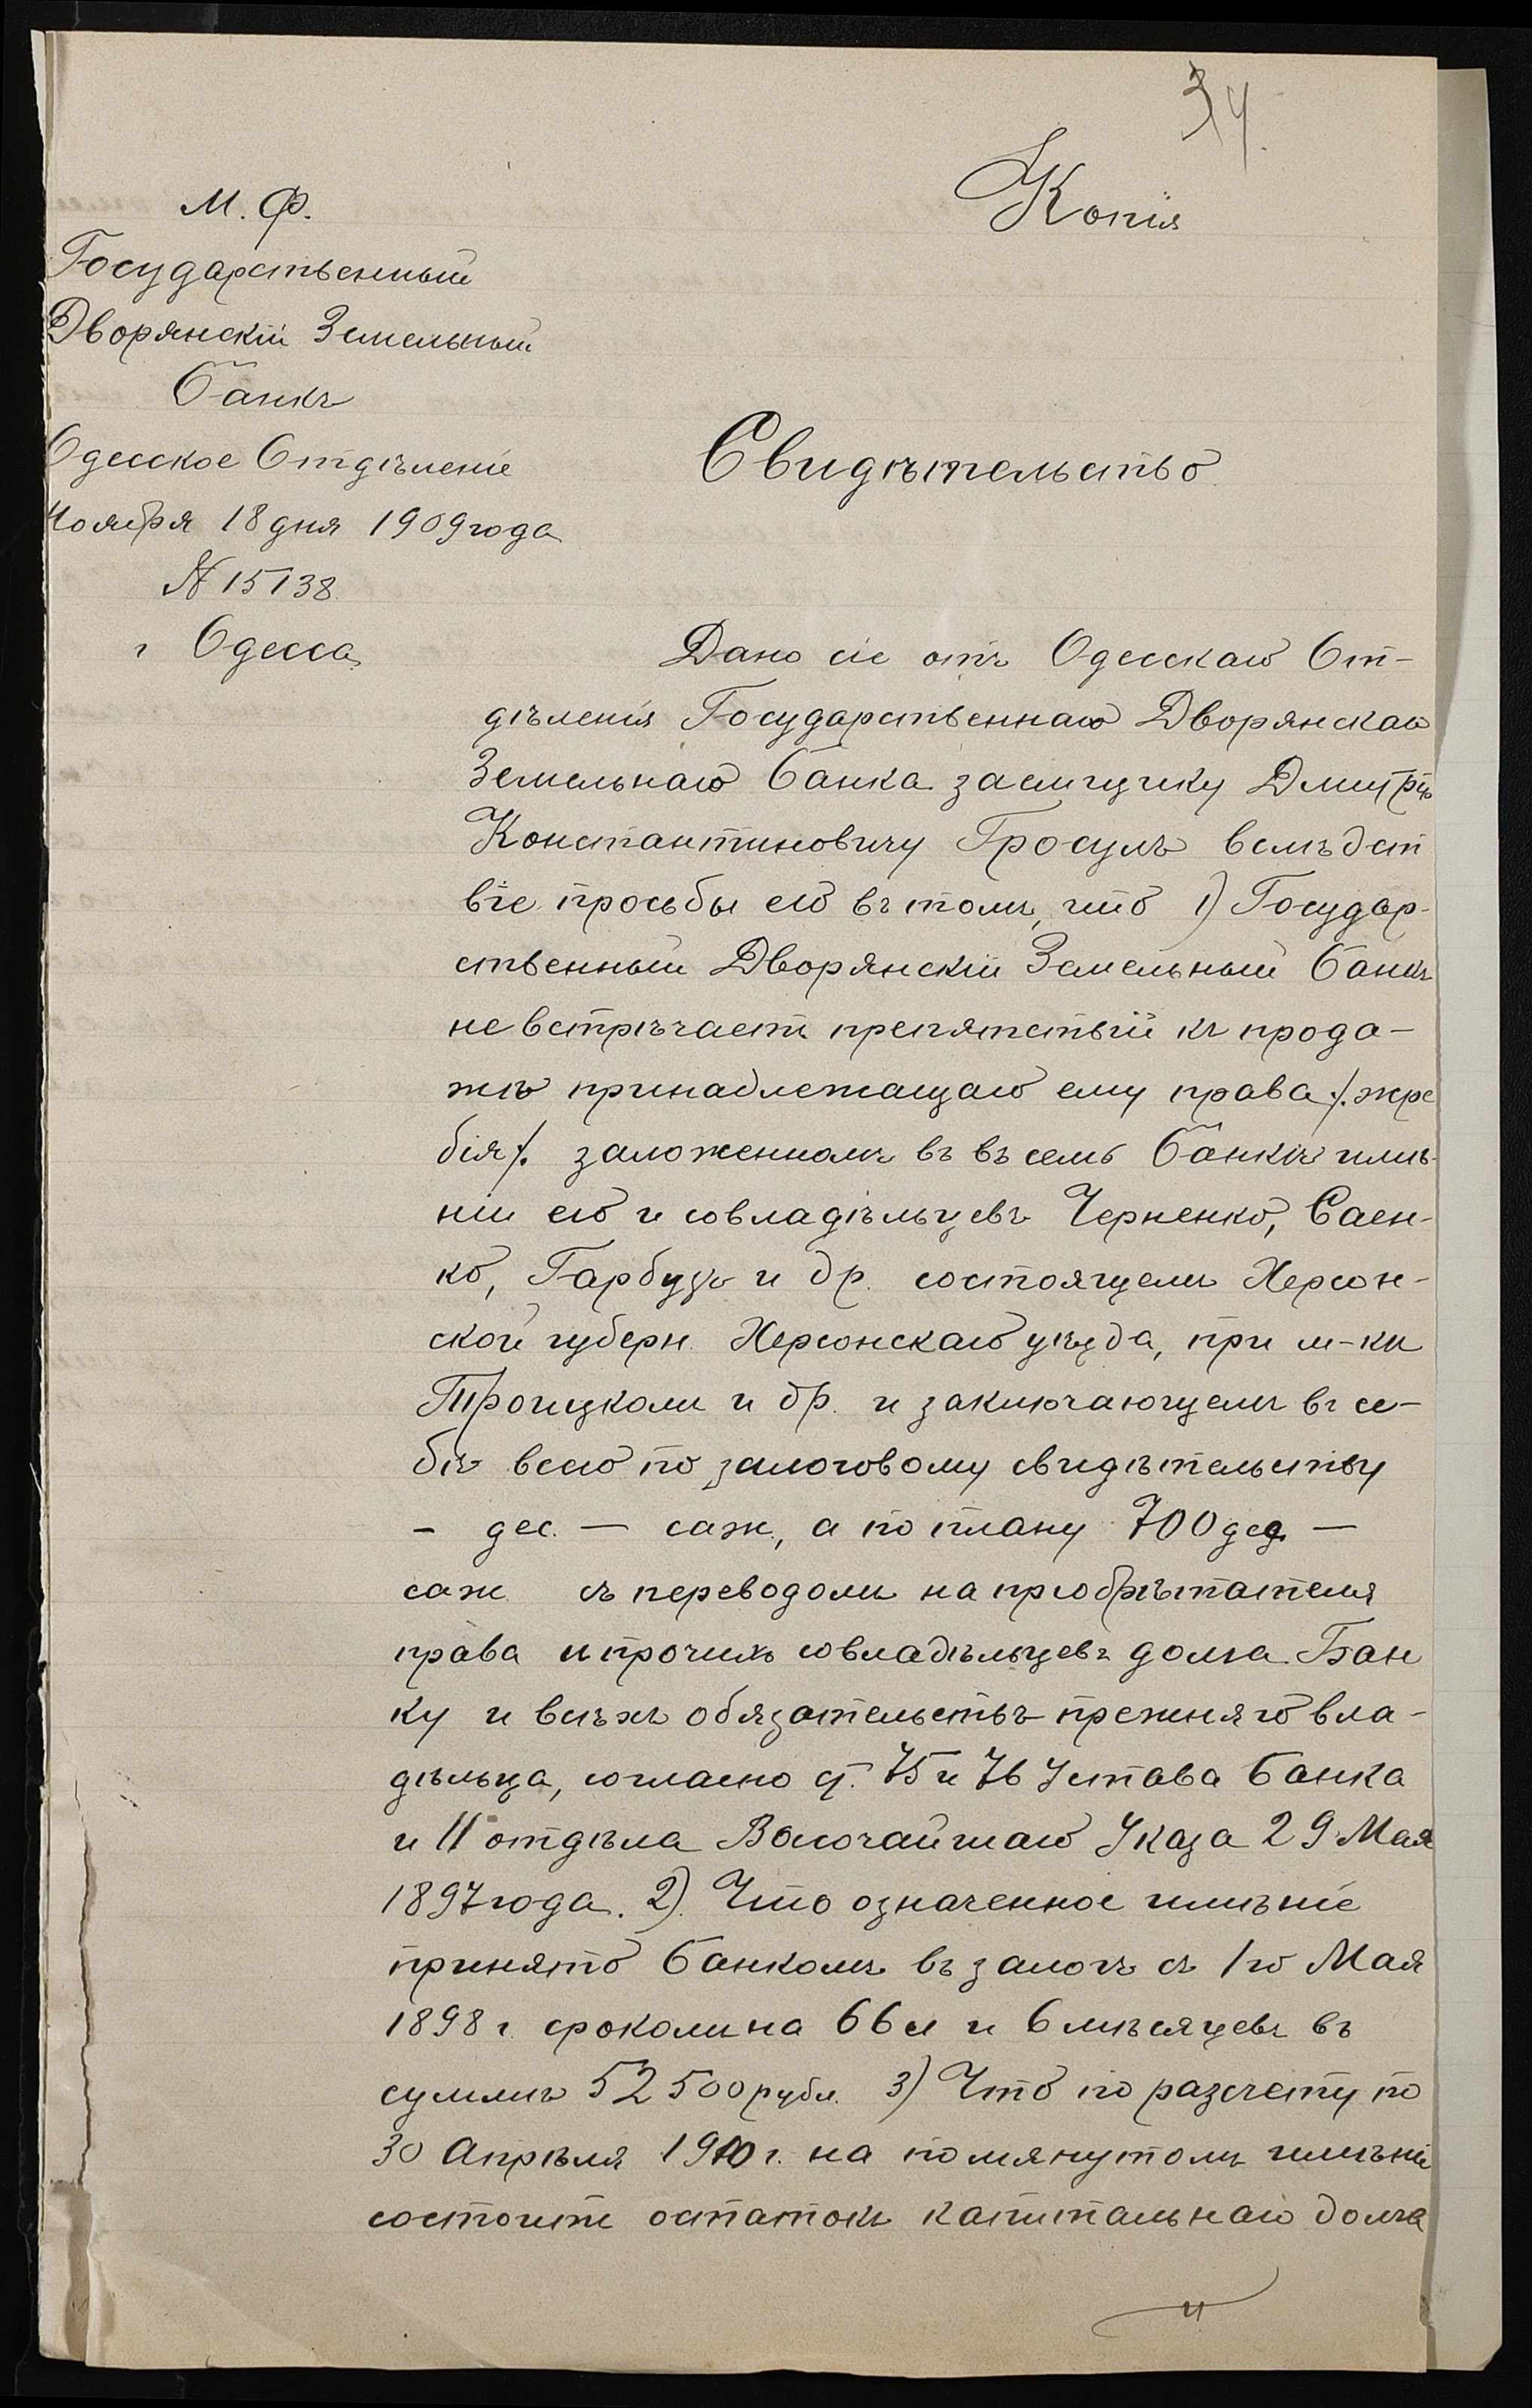 34.
Копія
М. Ф.
Государственный
Дворянскій Земельный
Банкъ
Одесское Отдѣленіе
Ноября 18 дня 1909 года
№ 15138
г Одесса
Свидѣтельство
Дано сіе отъ Одесскаго От-
дѣленія Государственнаго Дворянскаго
Земельнаго Банка заемщику Дмитрію
Константиновичу Гросулъ вслѣдст
віе просьбы его въ томъ, что 1) Государ-
ственный Дворянскій Земельный Банкъ
не встрѣчаетъ препятствій къ прода-
жѣ принадлежащаго ему права ./. жре
бія ./. заложенномъ въ въ семъ Банкѣ имѣ-
ніи его и совладѣльцевъ Черненко, Саен-
ко, Гарбузъ и др. состоящемъ Херсон-
ской губерн. Херсонскаго уѣзда, при м-ки
Троицкомъ и др. и заключающемъ въ се-
бѣ всего по залоговому свидѣтельству
- дес. — саж., а по плану 700 дес. —
саж. съ переводомъ на пріобрѣтателя
права и прочихъ совладѣльцевъ долга Бан
ку и всѣхъ обязательствъ прежняго вла-
дѣльца, согласно ст. 75 и 76 Устава Банка
и II отдѣла Высочайшаго Указа 29 Мая
1897 года. 2). Что означенное имѣніе
принято Банкомъ въ залогъ съ 1го Мая
1898 г. срокомъ на 66 л и 6 мѣсяцевъ въ
суммѣ 52500 рубл. 3) Что по разсчету по
30 Апрѣля 1910 г. на помянутомъ имѣніи
состоитъ остатокъ капитальнаго долга